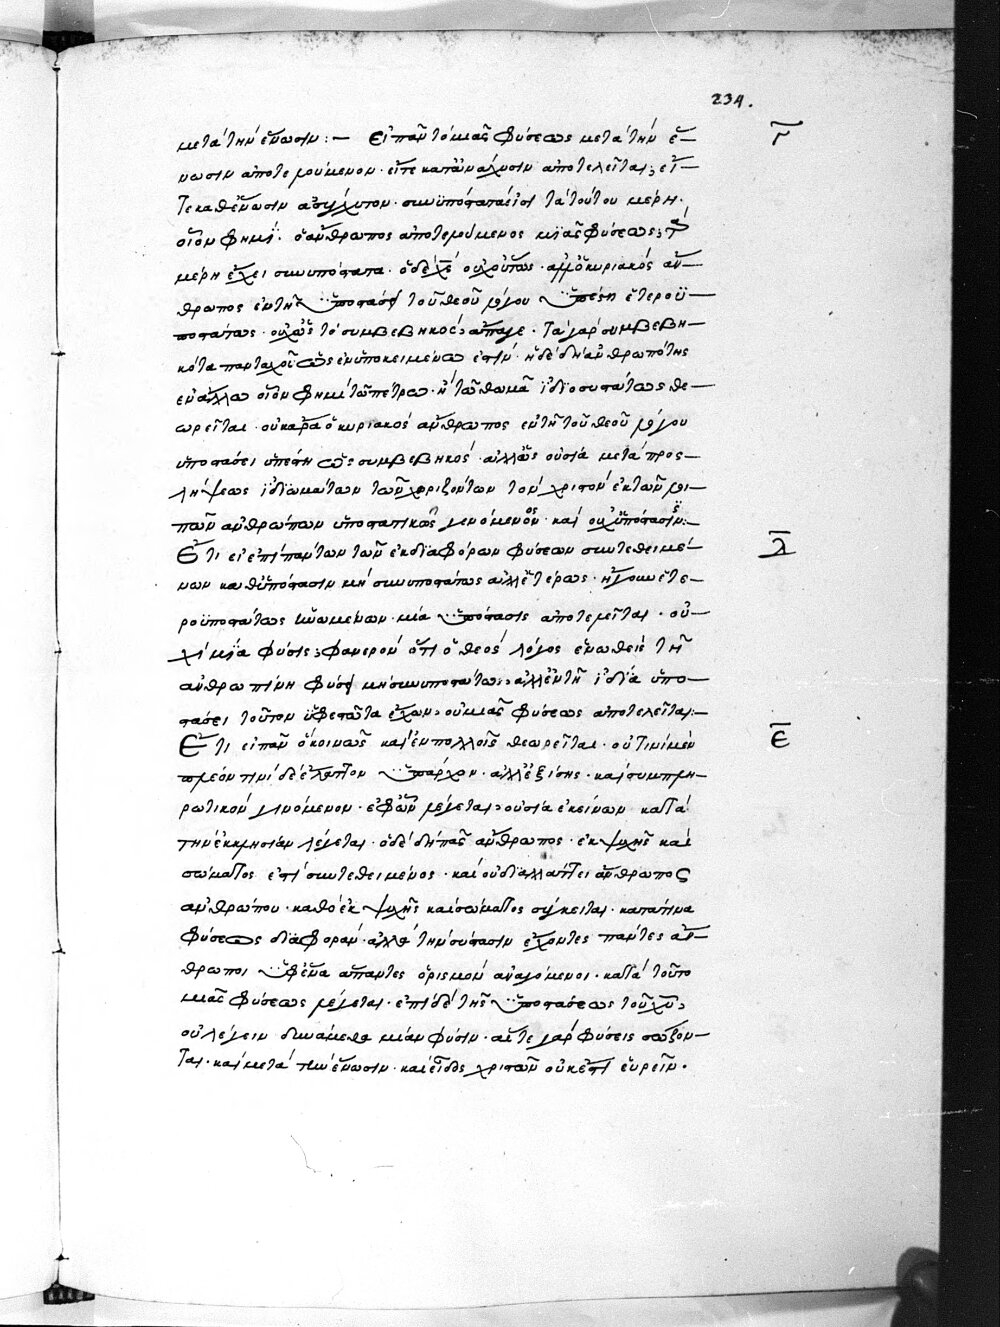 234.
μετὰ τὴν ἕνωσιν :— Εἰ πᾶν τὸ μιᾶς φύσεως μετὰ τὴν ἕ- γ̅
νωσιν ἀποτελούμενον· εἴτε κατ' ἀνάλυσιν ἀποτελεῖται, εἴ-
τε καθ' ἕνωσιν ἀσύγχυτον· συνϋπόστατά εἰσι τὰ τούτου μέρη·
οἷον φημί· ὁ ἄνθρωπος ἀποτελούμενος μιᾶς φύσεως,
μέρη ἔχει συνυπόστατα· ὁ δὲ χ̅ς̅ οὐχ οὕτως· ἀλλ' ὁ κυριακὸς ἄν-
θρωπος ἐν τῇ ὑποστάσει τοῦ θεοῦ λόγου ὑπέστη ἑτεροϋ-
ποστάτως· οὐχ ὡς τὸ συμβεβηκός, ἄπαγε· τὰ γὰρ συμβεβη-
κότα πανταχοῦ ὡς ἐν ὑποκειμένω ἐστίν· ἡ δὲ δὴ ἀνθρωπότης
ἐν ἄλλω οἷον φημὶ τῶ πέτρω· ἢ τῶ θωμᾶ ἰδιοσυστάτως θε-
ωρεῖται· οὐκ ἄρα ὁ κυριακὸς ἄνθρωπος ἐν τῇ τοῦ θεοῦ λόγου
ὑποστάσει ὑπέστη ὡς συμβεβηκός· ἀλλ' ὡς οὐσία μετὰ προς-
λήψεως ἰδιωμάτων τῶν χωριζόντων τὸν χριστὸν ἐκ τῶν λοι-
πῶν ἀνθρώπων ὑποστατικῶς γενόμενος· καὶ οὐχ ὑπόστασις:—
Ἔτι εἰ ἐπὶ πάντων τῶν ἐκ διαφόρων φύσεων συντεθειμέ- δ̅
νων καθ' ὑπόστασιν μὴ συνυποστάτως ἀλλ' ἑτέρως· ἤγουν ἑτε-
ροϋποστάτως ἑνωμένων· μία ὑπόστασις ἀποτελεῖται· οὐ-
χὶ μία φύσις, φανερὸν ὅτι ὁ θεὸς λόγος ἑνωθεὶς τῇ
ἀνθρωπίνη φύσει μὴ συνυποστάτως, ἀλλ' ἐν τῇ ἰδία ὑπο-
στάσει τοῦτον ὑφεστῶτα ἔχων, οὐ μιᾶς φύσεως ἀποτελεῖται:—
Ἔτι εἰ πᾶν ὃ κοινῶς καὶ ἐν πολλοῖς θεωρεῖται· οὔ τινι μὲν ε̅
πλέον τινὶ δὲ ἔλαττον ὑπάρχον· ἀλλ' ἐξίσης· καὶ συμπλη-
ρωτικὸν γινόμενον· ἐφ' ὧν λέγεται, οὐσία ἐκείνων κατὰ
τὴν ἐκκλησίαν λέγεται· ὁ δὲ δὴ πᾶς ἄνθρωπος· ἐκ ψυχῆς καὶ
σώματος ἐστὶ συντεθειμένος· καὶ οὐ διαλλάττει ἄνθρωπος
ἀνθρώπου· καθὸ ἐκ ψυχῆς καὶ σώματος σύγκειται· κατά τινα
φύσεως διαφοράν· ἀλλὰ τὴν σύστασιν ἔχοντες πάντες ἄν-
θρωποι ὑφ' ἕνα ἅπαντες ὁρισμὸν ἀναγόμενοι· κατὰ τοῦτο
μιᾶς φύσεως λέγεται· ἐπὶ δὲ τῆς ὑποστάσεως τοῦ χ̅υ̅,
οὐ λέγειν δυνάμεθα μίαν φύσιν· αἵτε γὰρ φύσεις σώζον-
ται· καὶ μετὰ τὴν ἕνωσιν· καὶ εἶδος χριστῶν οὐκ ἔστι εὑρεῖν·